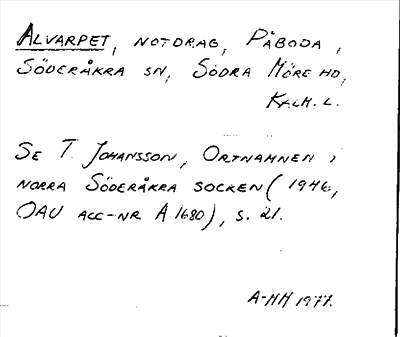 ALVARPET, NOTDRAG, PÅBODA,
SÖDERÅKRA SN, SÖDRA MÖRE HD,
KALM. L.
SE T. JOHANSSON, ORTNAMNEN I
NORRA SÖDERÅKRA SOCKEN (1946,
OAU ACC-NR A 1680), S. 21.
A-HH 1977.